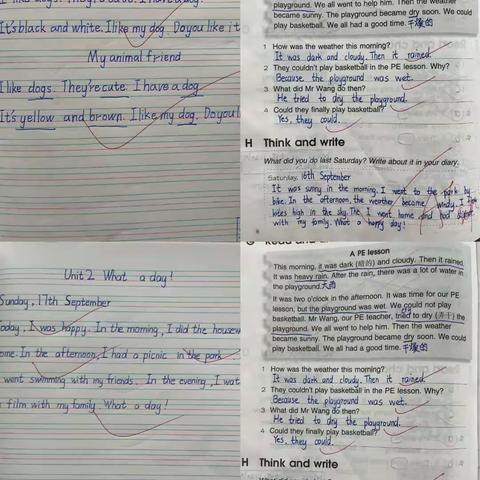 It's black and white. I like my dog. Do you like it
My animal friend
I like dogs. They're cute. I have a dog.
It's yellow and brown. I like my dog. Do you l
playground. We all went to help him. Then the weather
became sunny. The playground became dry soon. We could
play basketball. We all had a good time. 干燥的
1 How was the weather this morning?
It was dark and cloudy. Then it rained.
2 They couldn't play basketball in the PE lesson. Why?
Because the playground was wet.
3 What did Mr Wang do then?
He tried to dry the playground.
4 Could they finally play basketball?
Yes, they could.
H Think and write
What did you do last Saturday? Write about it in your diary.
Saturday, 16th September
It was sunny in the morning. I went to the park by
bike. In the afternoon, the weather became windy. I
kites high in the sky. The I went home and had
with my family. What a happy day!
Unit 2 What a day!
Sunday, 17th September
oday, I was happy. In the morning, I did the housew
ome. In the afternoon, I had a picnic in the park
went swimming with my friends. In the evening, I wat
film with my family. What a day!
A PE lesson
This morning, it was dark (暗的) and cloudy. Then it rained.
It was heavy rain. After the rain, there was a lot of water in
the playground. 大雨
It was two o'clock in the afternoon. It was time for our PE
lesson, but the playground was wet. We could not play
basketball. Mr Wang, our PE teacher, tried to dry (弄干) the
playground. We all went to help him. Then the weather
became sunny. The playground became dry soon. We could
play basketball. We all had a good time. 干燥的
1 How was the weather this morning?
It was dark and cloudy. Then it rained.
2 They couldn't play basketball in the PE lesson. Why?
Because the playground was wet.
3 What did Mr Wang do then?
He tried to dry the playground.
4 Could they finally play basketball?
Yes, they could.
H Think and write